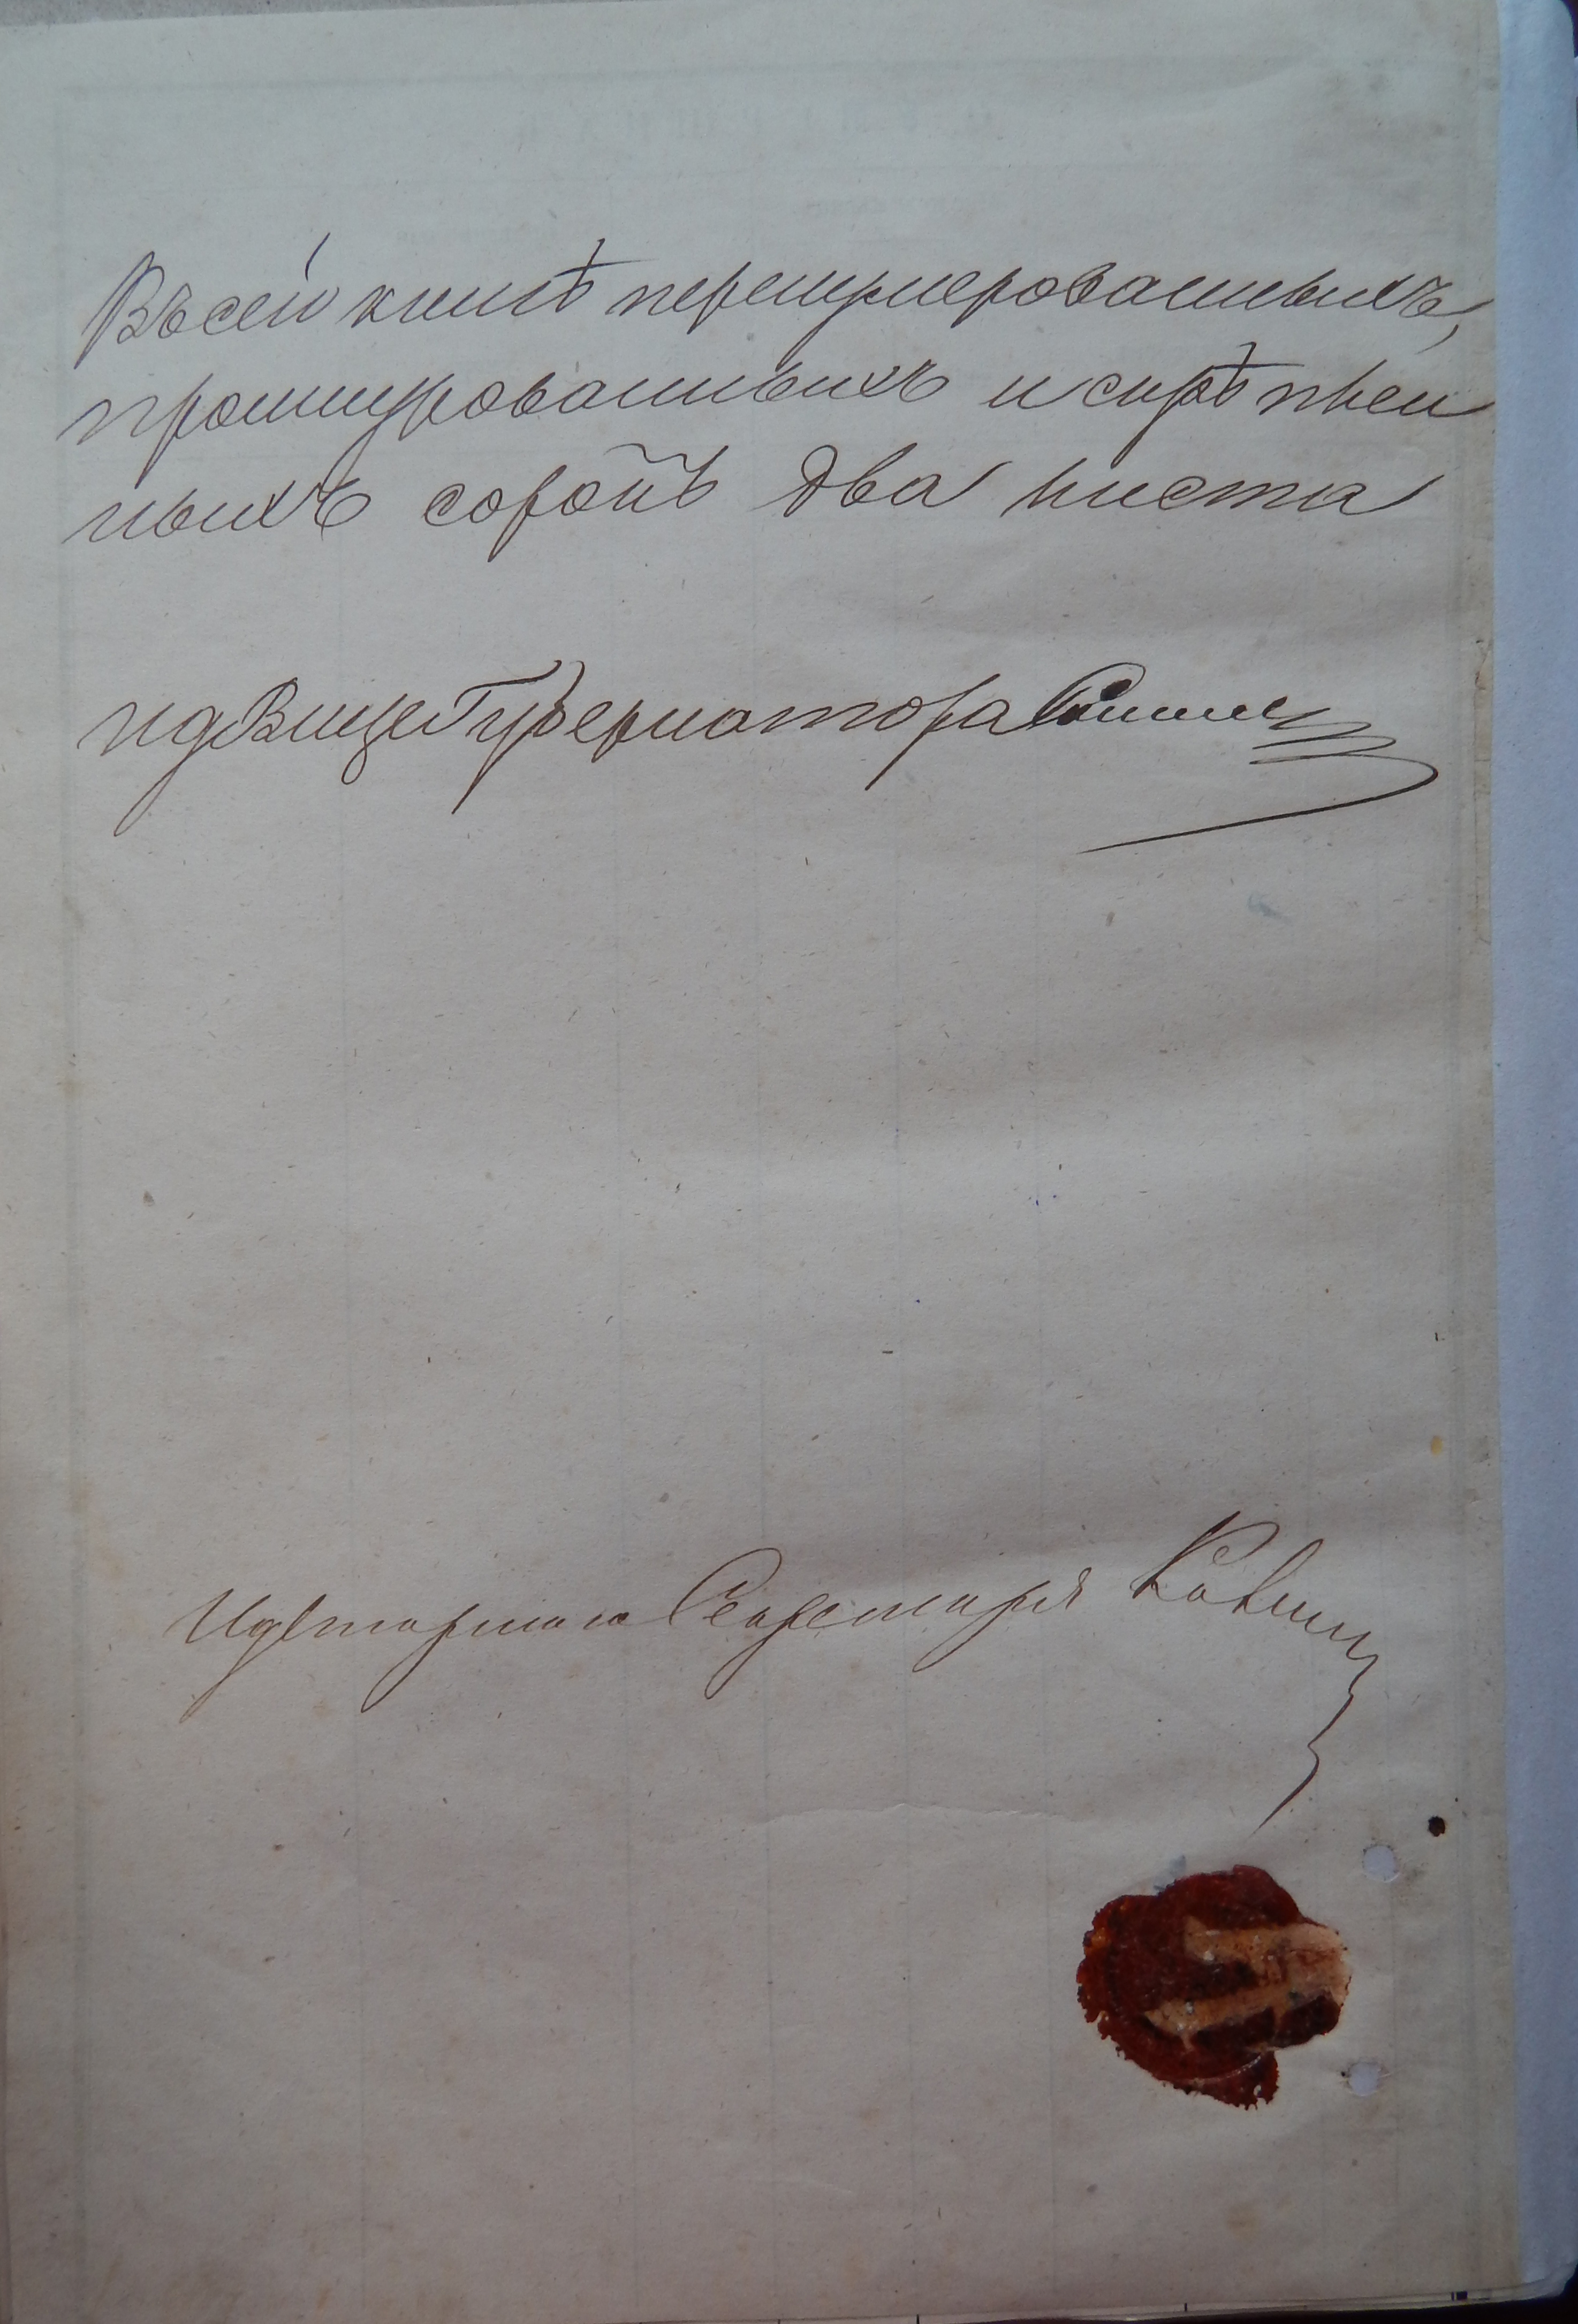 Въ сей книгѣ перенумерованныхъ,
прошнурованныхъ и скрѣплен
ныхъ сорокъ два листа
И д Вице Губернатора
И д Старшаго Секретаря